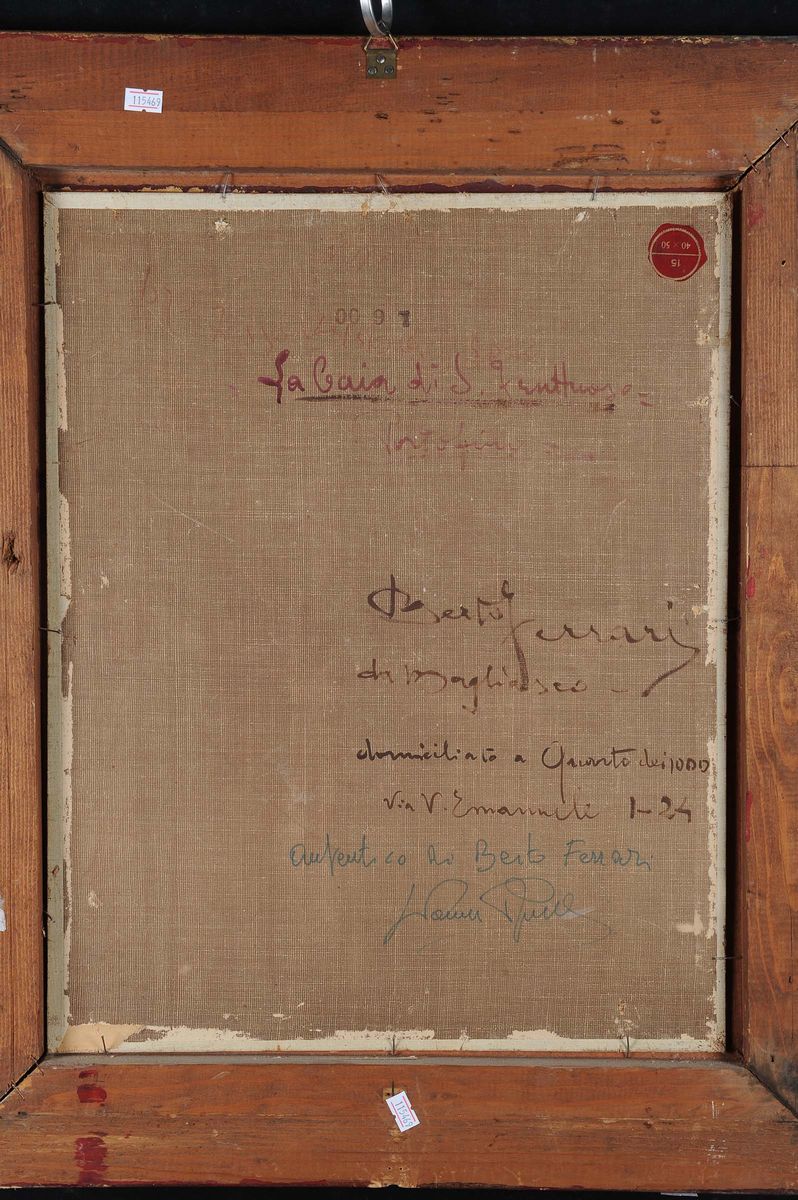 115469
15
40 × 50
0097
La Baia di S. Fruttuoso =
Portofino =
Berto Ferrari
di Bogliasco -
domiciliato a Quarto dei 1000
Via V. Emanuele 1-24
autentico di Berto Ferrari
115469